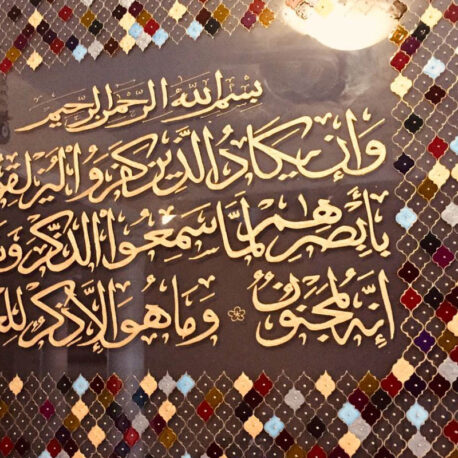 بسم الله الرحمن الرحیم
وَإن يَكَادُ الَّذينَ كَفَرُوا لَيُزلِقُو
بِأَبصَرِهِم لَمَّا سَمِعُوا الذِّكرَ وَ
إِنَّهُ لَمَجنُونٌ وَمَا هُوَ إِلّا ذِكرٌ